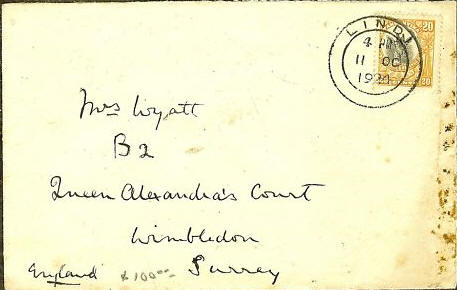 LINDI
20 20
4 PM
11 OC
1924
Mrs Wyatt
B2
Queen Alexandra's Court
Wimbledon
England $100 Surrey